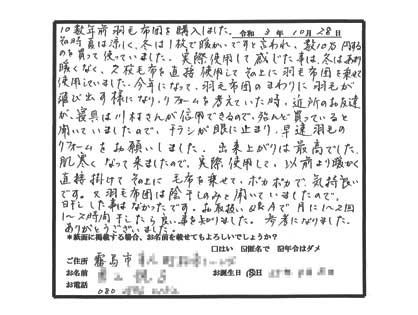 10数年前羽毛布団を購入しました。
令和 3年 10月 28日
その時夏は涼しく、冬は1枚で暖かいですと言われ、数10万円する
のを買って使っていました。実際使用して感じた事は、冬はあまり
暖くなく、2枚毛布を直接使用してその上に羽毛布団を乗せて
使用していました。今年になって、羽毛布団のまわりに羽毛が
飛び出す様になり、リフォームを考えていた時、近所のお友達
が、寝具は川村さんが信用できるので、殆んど買っていると
聞いていましたので、チラシが眼に止まり、早速羽毛の
リフォームをお願いしました。出来上がりは最高でした。
肌寒くなって来ましたので、実際使用して、以前より暖かく
直接掛けてその上に毛布を乗せて、ポカポカで、気持良い
です。又羽毛布団は陰干しのみと聞いていましたので、
日干しした事はなかったです。お取扱いQ&Aで月に1〜2回
1〜2時間干したら良い事を知りました。参考になりました。
ありがとうございました。
*紙面に掲載する場合、お名前を載せてもよろしいでしょうか?
□はい ☑匿名で ☑年令はダメ
ご住所 霧島市
お名前 お誕生日
お電話 080